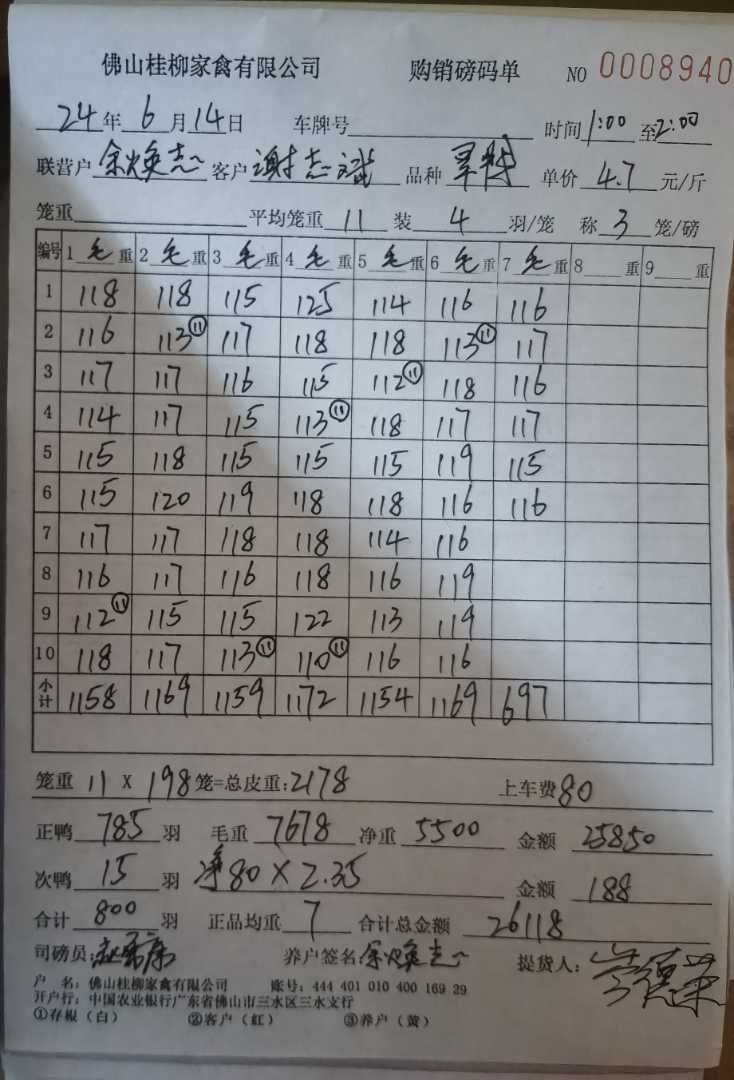 佛山桂柳家禽有限公司 购销磅码单 NO 0008940
24年6月14日 车牌号 时间1:00至2:00
联营户余焕志 客户谢志斌 品种 单价4.7元/斤
笼重 平均笼重11装4羽/笼 称3笼/磅
编号 1毛重 2毛重 3毛重 4毛重 5毛重 6毛重 7毛重 8重 9重
1 118 118 115 125 114 116 116
2 116 113⑪ 117 118 118 113⑪ 117
3 117 117 116 115 112⑪ 118 116
4 114 117 115 113⑪ 118 117 117
5 115 118 115 115 115 119 115
6 115 120 119 118 118 116 116
7 117 117 118 118 114 116
8 116 117 116 118 116 119
9 112⑪ 115 115 122 113 119
10 118 117 113⑪ 110⑪ 116 116
小计 1158 1169 1159 1172 1154 1169 697
笼重11X198笼=总皮重:2178 上车费80
正鸭785羽 毛重7678净重5500 金额25850
次鸭15羽 净80×2.35 金额188
合计800羽 正品均重7合计总金额26118
司磅员: 养户签名余焕志 提货人:
户 名:佛山桂柳家禽有限公司 账号:444 401 010 400 169 29
开户行:中国农业银行广东省佛山市三水区三水支行
①存根(白) ②客户(红) ③养户(黄)